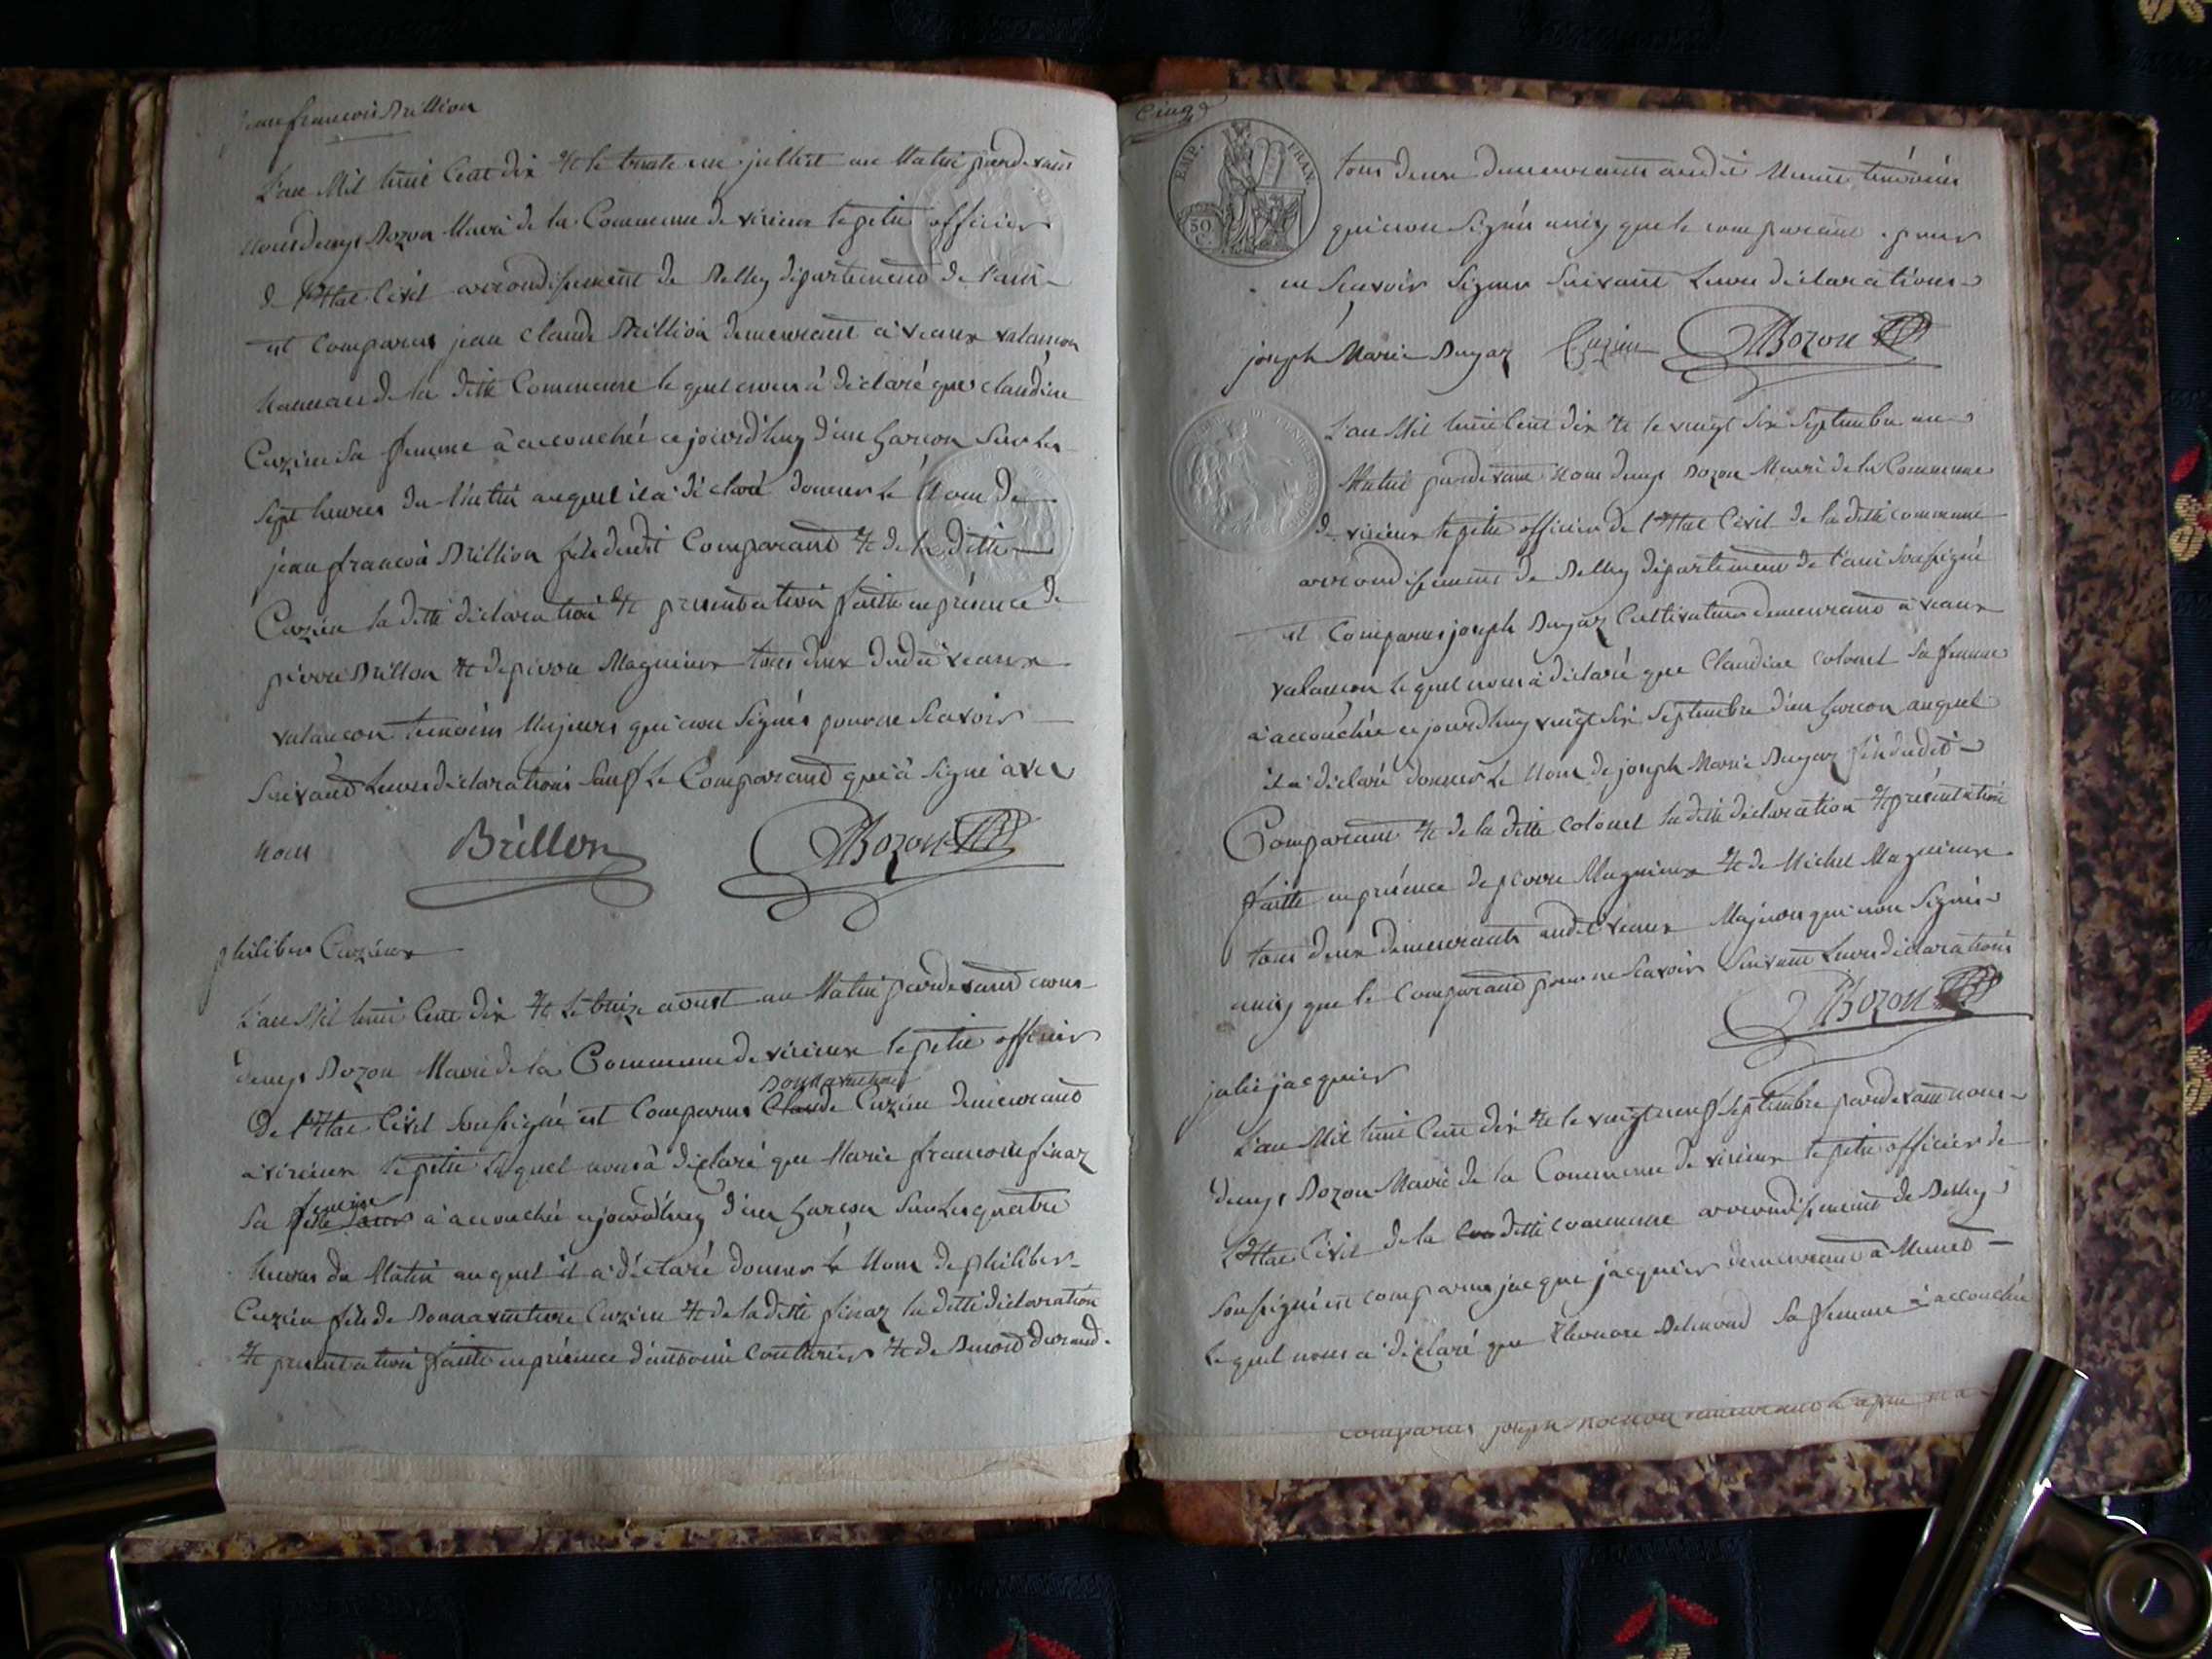 jean françois Brillion
L'an Mil huit Cent dix & le trente un juillet au Matin pardevant
nous denys Bozon Maire de la Commune de virieux le petit officier
de l'Etat Civil arrondissement de Belley département de l'ain
est Comparus jean claude Brillion demeurant à veaux valancon
hameau de la ditte Commune le quel nous à déclaré que claudine
Cuzin sa femme à accouchée ce jourd'huy d'un Garcon sur les
sept heures du Matin auquel il a déclaré donner le Nom de
jean francois Brillion fils dudit Comparant & de la ditte
Cuzin la ditte déclaration & présentation faitte en présence de
pierre Brillon & de pierre Magnieux tous deux dudit veaux
valancon temoins Majeurs qui n'on Signés pour ne Scavoir
Suivant Leurs déclarations Sauf Le Comparand qui à Signé avec
nous Brillon DBozon
philiber Cuzin
L'an Mil huit Cent dix & le treize aoust au Matin pardevand nous
denys Bozon Maire de la Commune de virieux le petit officier
De l'Etat Civil Soussigné est Comparus Claude Bonnaventure Cuzin demeurand
à virieux le petit Lequel nous à déclaré que Marie francoise finaz
Sa femme à accouchée ce jourd'huy d'un Garcon sur Les quatre
heures du Matin auquel il a déclaré donner le Nom de philiber
Cuzin fils de Bonnaventure Cuzin & de la ditte finaz la ditte déclaration
& présentation faitte en présence d'antoine Couturier & de Benoid durand
Cinq
EMP. FRAN.
50 C.
tous deux demeurants audit Munet témoins
qui n'on Signés ainsy que le comparant pour
ne Scavoir Signer Suivant Leurs déclarations
joseph Marie Dugaz Cuzin DBozon
L'an Mil huit Cent dix & le vingt Six Septembre au
Matin pardevant Nous denys Bozon Maire de la Commune
de virieux le petit officier de l'Etat Civil de la ditte commune
arrondissement de Belley département de l'ain Soussigné
est Comparus joseph Dugaz Cultivateur demeurand à veaux
valancon le quel nous à déclaré que Claudine colonel Sa femme
à accouchée ce jourdhuy vingt Six Septembre d'un Garcon auquel
il a déclaré donner Le Nom de joseph Marie Dugaz fils dudit
Comparant & de la ditte colonel la ditte déclaration & présentation
faitte en présence de pierre Magnieux & de Michel Magnieux
tous deux demeurants audit veaux Majeurs qui n'on Signés
ainsy que le Comparand pour ne Scavoir Suivant Leurs déclarations
DBozon
julie jacquier
L'an Mil huit Cent dix & le vingt neuf Septembre pardevant nous
denys Bozon Maire de la Commune de virieux le petit officier de
l'Etat Civil de la ditte commune arrondissement de Belley
Soussigné est comparus jacque jacquier demeurand à Munet
Lequel nous a déclaré que Eleonore Sa femme à accouchée
comparus joseph